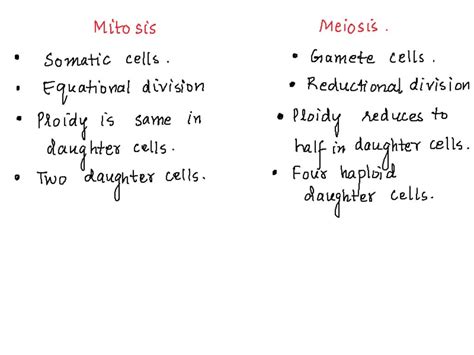 Mitosis
• Somatic cells.
• Equational division
• Ploidy is same in
daughter cells.
• Two daughter cells.
Meiosis.
• Gamete cells.
• Reductional division
• Ploidy reduces to
half in daughter cells.
• Four haploid
daughter cells.